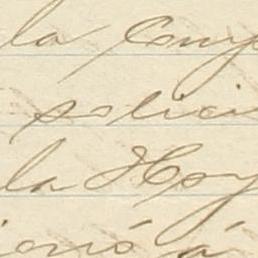 la Comp
solici
la Hoy
ionó á